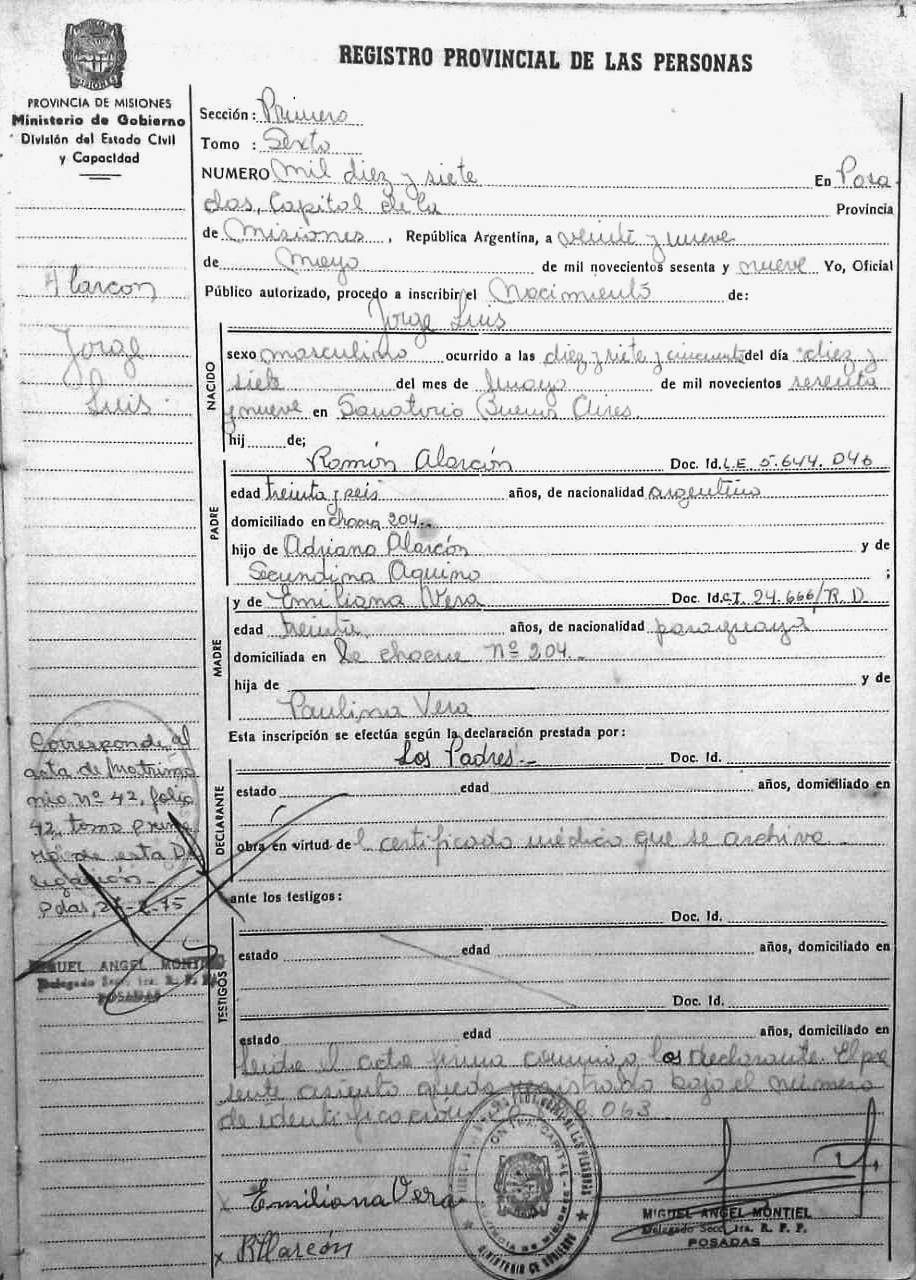 1
PROVINCIA DE MISIONES
Ministerio de Gobierno
División del Estado Civil
y Capacidad
Alarcon
Jorge
Luis
Corresponde al
acta de Matrimo
nio Nº 42, folio
42, tomo prime
ro de esta De
legación.-
Pdas,
MIGUEL ANGEL MONTIEL
Delegado Secc. 1ra. R. P. P.
POSADAS
REGISTRO PROVINCIAL DE LAS PERSONAS
Sección: Primera
Tomo : Sexto
NUMERO Mil diez y siete En Posa
das, Capital de la Provincia
de Misiones, República Argentina, a veinte y nueve
de Mayo de mil novecientos sesenta y nueve Yo, Oficial
Público autorizado, procedo a inscribir el Nacimiento de:
Jorge Luis
NACIDO
sexo masculino ocurrido a las diez y siete y cincuenta del día diez y
siete del mes de mayo de mil novecientos sesenta
y nueve en Sanatorio Buenos Aires
hij de;
PADRE
Ramón Alarcón Doc. Id. L.E. 5.644.046
edad treinta y seis años, de nacionalidad argentino
domiciliado en chacra 204.
hijo de Adriano Alarcón y de
Secundina Aquino ;
MADRE
y de Emiliana Vera Doc. Id. C.I. 24.666/R.D.
edad treinta años, de nacionalidad paraguaya
domiciliada en chacra Nº 204.
hija de y de
Paulina Vera
Esta inscripción se efectúa según la declaración prestada por:
DECLARANTE
Los Padres.- Doc. Id.
estado edad años, domiciliado en
obra en virtud del certificado médico que se archiva.
ante los testigos:
TESTIGOS
Doc. Id.
estado edad años, domiciliado en
Doc. Id.
estado edad años, domiciliado en
Leida el acta firma conmigo los declarante. El pre
sente asiento queda registrado bajo el número
de identificación
Emiliana Vera
R Alarcón
MINISTERIO DE GOBIERNO
MIGUEL ANGEL MONTIEL
Delegado Secc. 1ra. R. P. P.
POSADAS